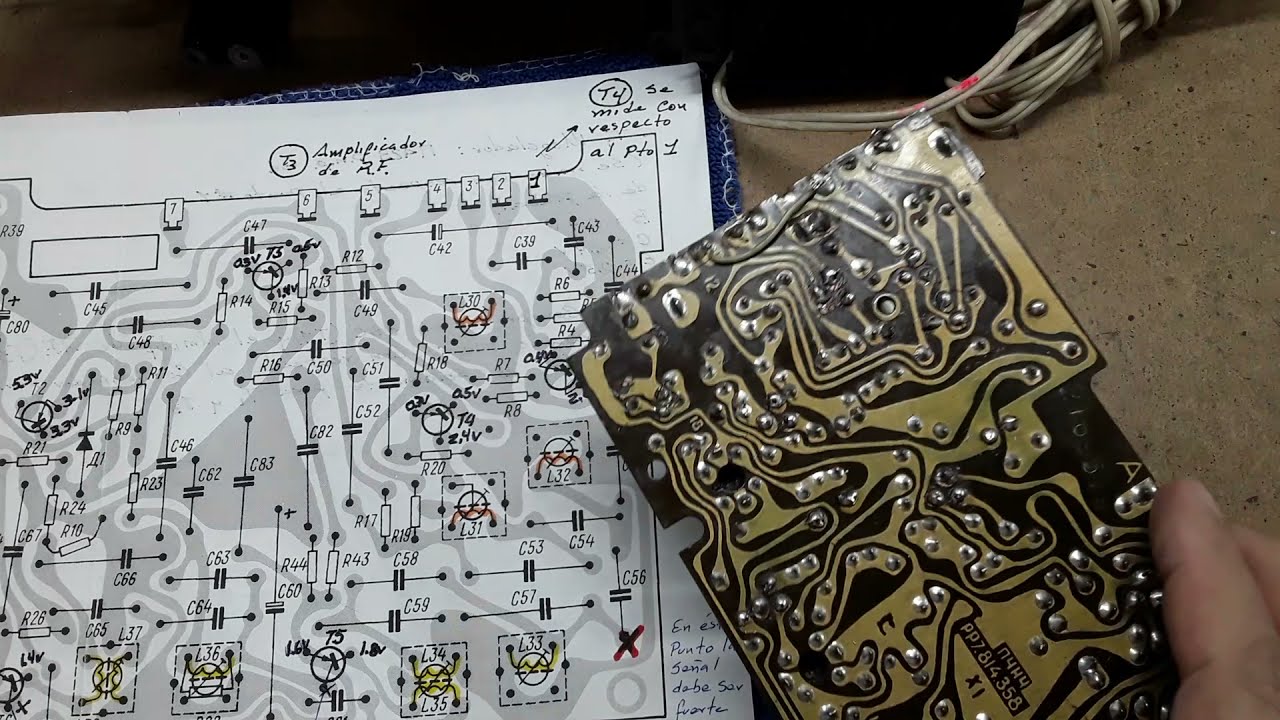 T4 se
mide con
respecto
al pto 1
T3 Amplificador
de R.F.
7 6 5 4 3 2 1
R39
C47
C42
C43
C39
C44
0.3v T3 0.6v
R12
R13
1.4v
C80
C45
R14
R15
C49
R6
C48
L30
R4
R16
C50
C51
R18
R7
R8
T2
3.1v
3.3v
R11
R9
0.5v
T4
2.4v
R21
Д1
C46
C52
C82
R20
L32
C62
C83
R23
R24
R10
C67
R17
R19
L31
C54
C66
C63
R44
R43
C58
C53
C56
C60
C64
C59
C57
R26
C65
L37
1.4v
L36
1.6v T5 1.8v
L34
L35
L33
En est
Punto l
señal
debe ser
fuerte
A
E
П4НЧ
РР7.814.358
X1